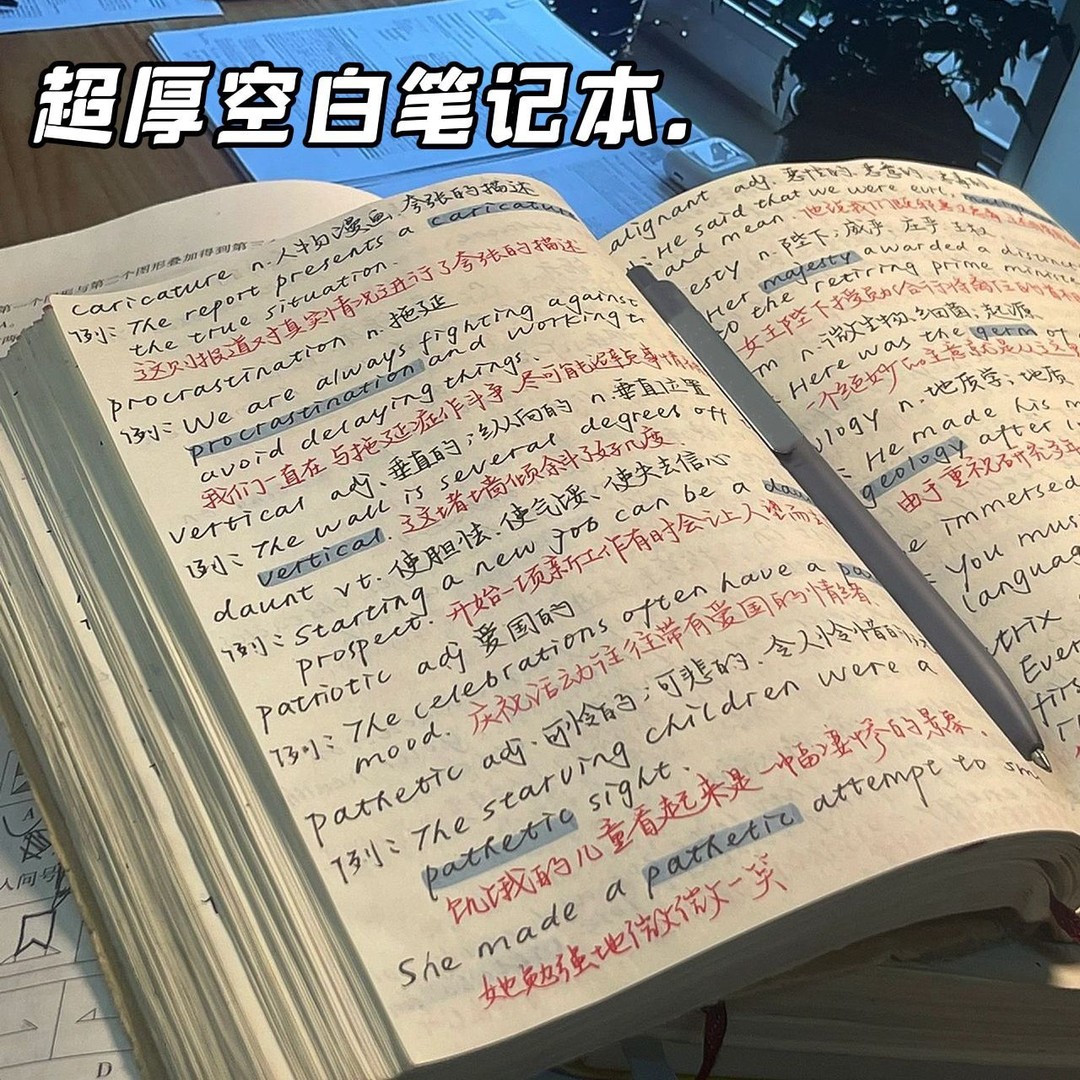 超厚空白笔记本.
第一个图形与第二个图形叠加得到第三
caricature n.人物漫画,夸张的描述
例: The report presents a caricature
the true situation.
这则报道对真实情况进行了夸张的描述
procrastination n. 拖延
例: We are always fighting against
procrastination and working to
avoid delaying things.
我们一直在与拖延症作斗争,尽可能避免事情
vertical adj.垂直的;纵向的 n.垂直位置
例: The wall is several degrees off
vertical. 这堵墙倾斜了好几度.
daunt vt. 使胆怯、使气馁、使失去信心
例: Starting a new job can be a
prospect. 开始一项新工作有时会让人望而
patriotic adj 爱国的
例: The celebrations often have a
mood. 庆祝活动往往带有爱国的情绪.
pathetic adj.可怜的;可悲的、令人怜惜的
例: The starving children were a
pathetic sight.
饥饿的儿童看起来是一幅凄惨的景象.
She made a pathetic attempt to
她勉强地微微一笑
alignant adj. 恶性的,恶意的,
: He said that we were evil,
and mean.
esty n.陛下;威严,庄严,王权
Her majesty awarded a distinct
to the retiring prime minist
女王陛下
m n.微生物,细菌;起源
Here was the germ of
一个绝妙
ology n.地质学;地质
: He made his
geology after
由于重视研究多年
e immersed
You mus
languag
trix
Ever
firs
人间号
A
D